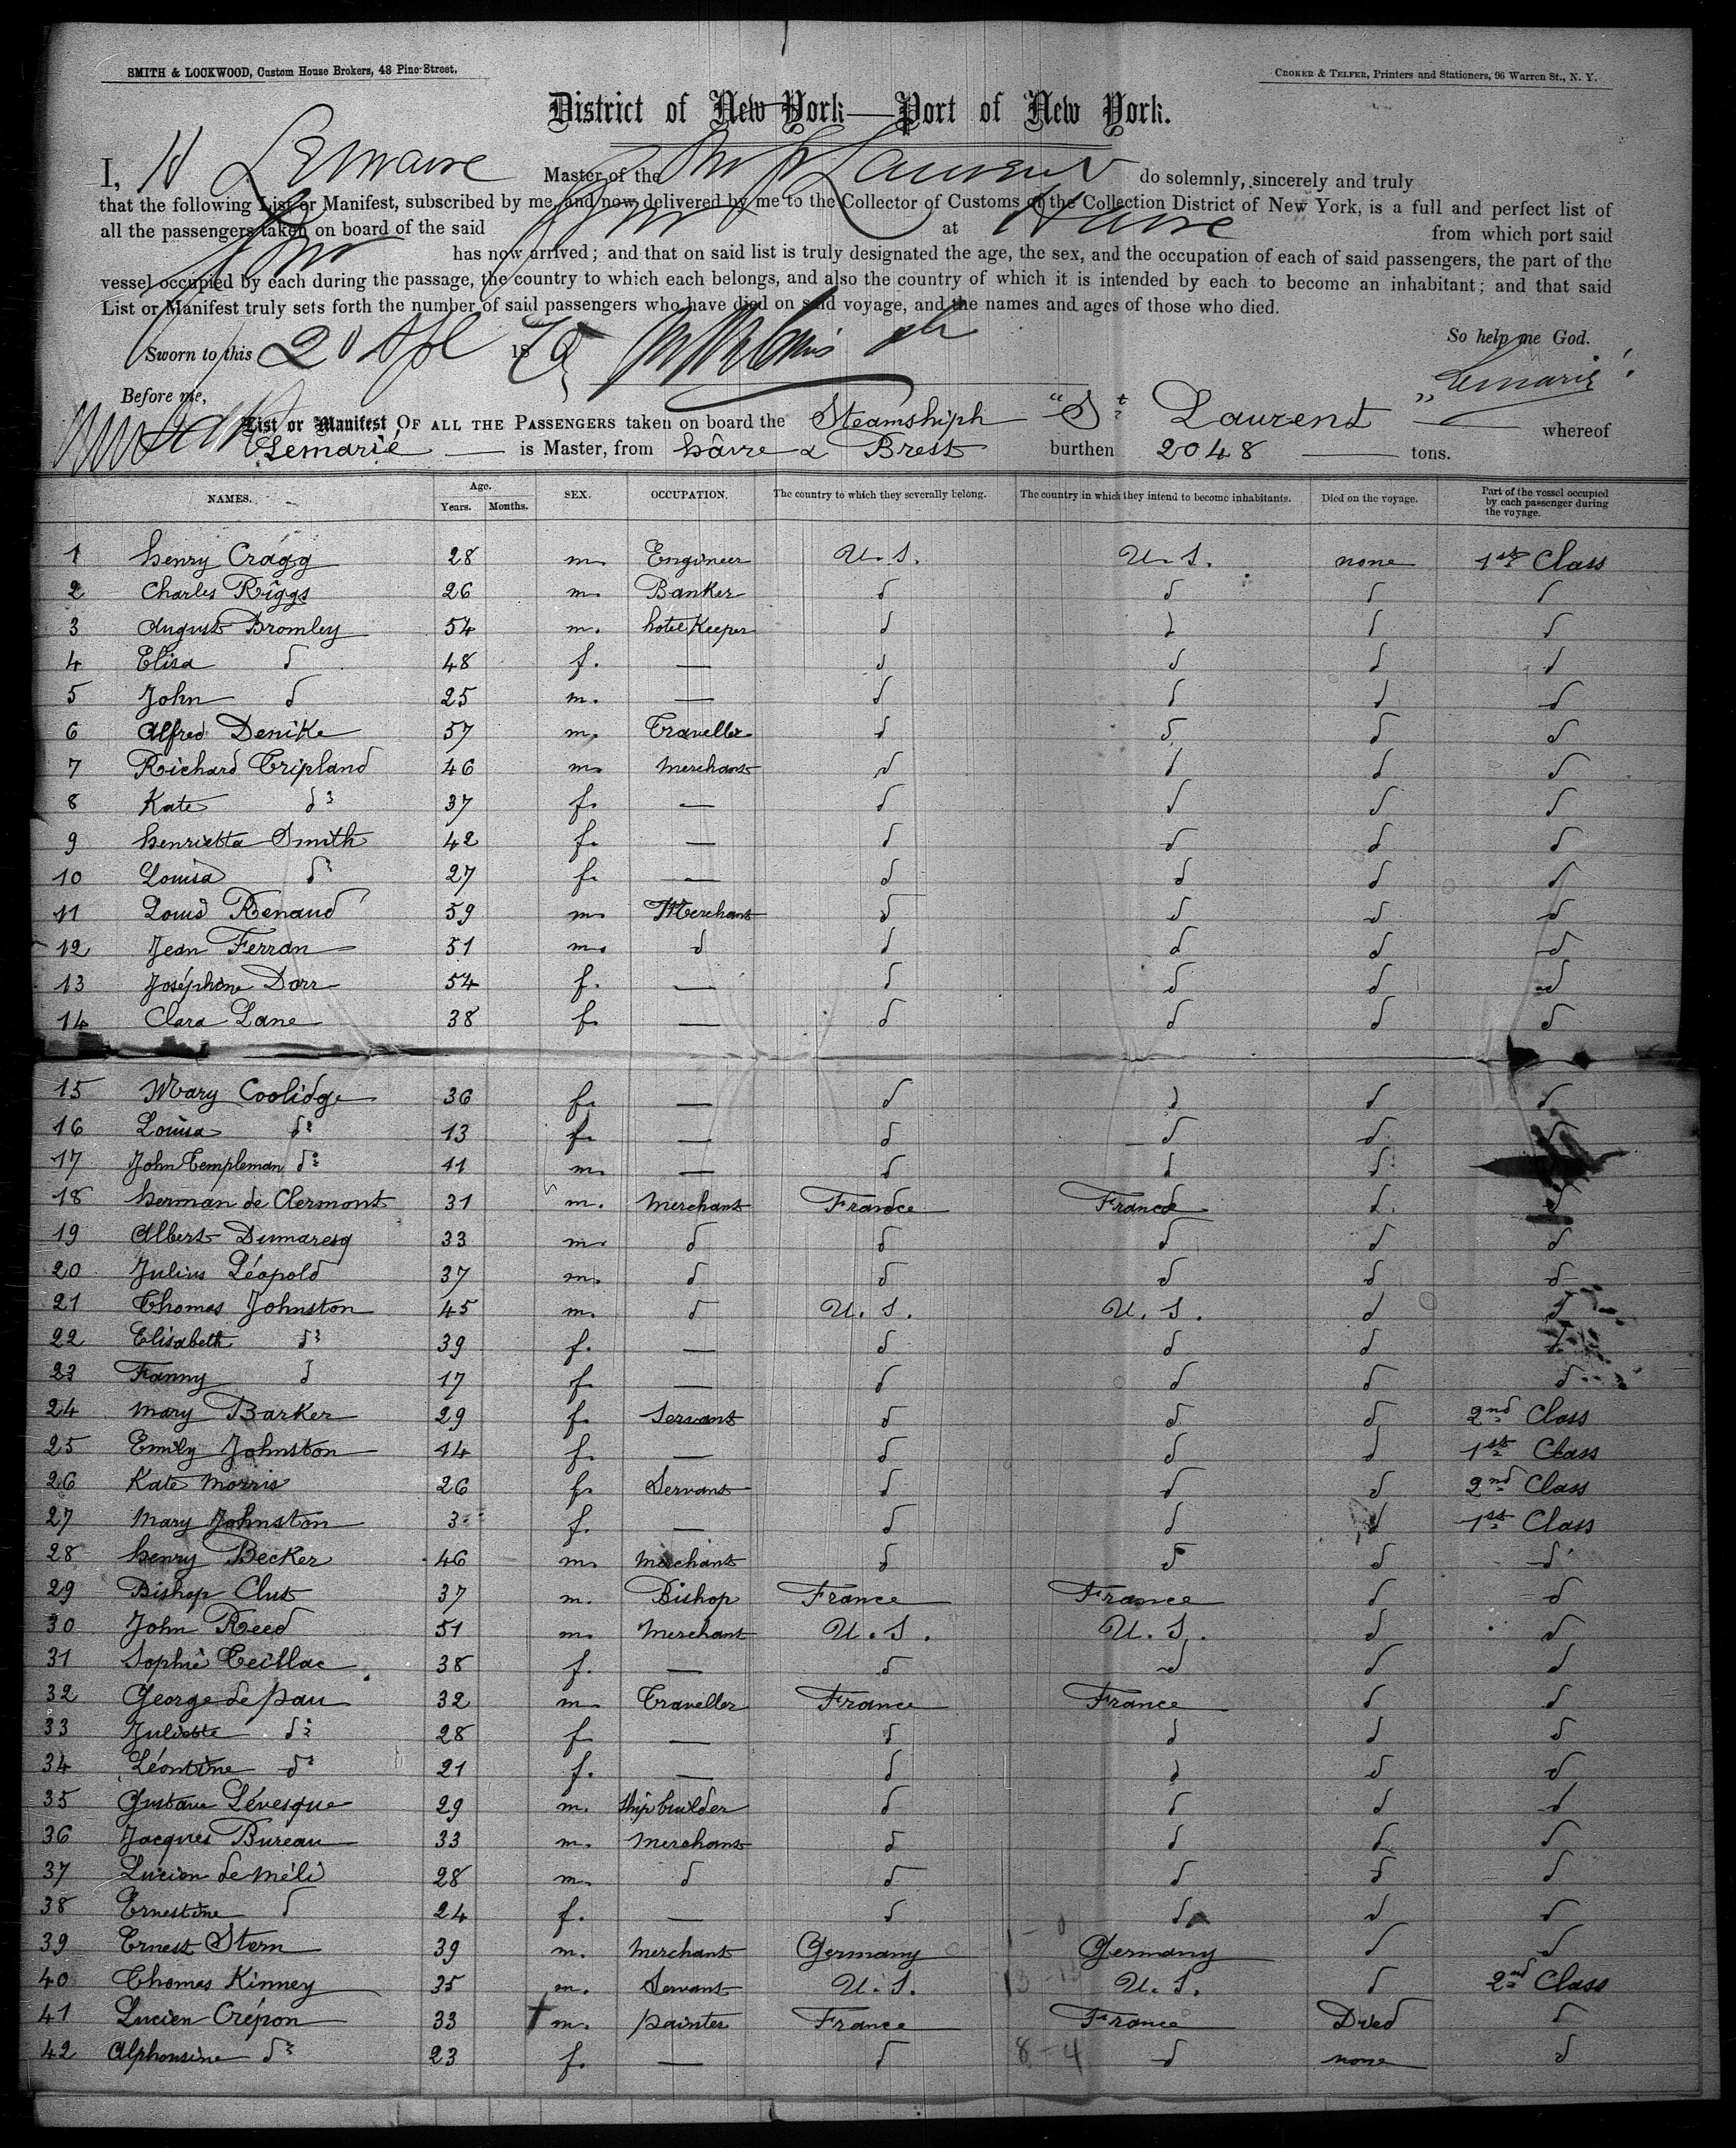 SMITH & LOCKWOOD, Custom House Brokers, 48 Pine Street,
CROKER & TELFER, Printers and Stationers, 96 Warren St., N. Y.
District of New York—Port of New York.
I, H Lemarie Master of the Ship St Laurent do solemnly, sincerely and truly
that the following List or Manifest, subscribed by me, and now delivered by me to the Collector of Customs of the Collection District of New York, is a full and perfect list of
all the passengers taken on board of the said at Havre from which port said
has now arrived; and that on said list is truly designated the age, the sex, and the occupation of each of said passengers, the part of the
vessel occupied by each during the passage, the country to which each belongs, and also the country of which it is intended by each to become an inhabitant; and that said
List or Manifest truly sets forth the number of said passengers who have died on said voyage, and the names and ages of those who died.
So help me God.
Sworn to this 20 Apl 18
Lemarié
Before me,
List or Manifest OF ALL THE PASSENGERS taken on board the Steamshiph "St Laurent" whereof
Lemarié is Master, from hâvre & Brest burthen 2048 tons.
NAMES. Age. Years. Months. SEX. OCCUPATION. The country to which they severally belong. The country in which they intend to become inhabitants. Died on the voyage. Part of the vessel occupied by each passenger during the voyage.
1 henry Cragg 28 m. Engineer U.S. U.S. none 1st Class
2 Charles Riggs 26 m. Banker d d d d
3 August Bromley 54 m. hotel Keeper d d d d
4 Elisa d 48 f. — d d d d
5 John d 25 m. — d d d d
6 Alfred Denike 57 m. Traveller d d d d
7 Richard Tripland 46 m. merchant d d d d
8 Kate do 37 f. — d d d d
9 henrietta Smith 42 f. — d d d d
10 Louisa do 27 f. — d d d d
11 Louis Renaud 59 m. Merchant d d d d
12 Jean Ferran 51 m. d d d d d
13 Joséphine Dorr 54 f. — d d d d
14 Clara Lane 38 f. — d d d d
15 Mary Coolidge 36 f. — d d d d
16 Louisa do 13 f. — d d d d
17 John Templeman do 11 m. — d d d
18 herman de Clermont 31 m. merchant France France d d
19 Albert Dumaresq 33 m. d d d d d
20 Julius Léopold 37 m. d d d d d
21 Thomas Johnston 45 m. d U.S. U.S. d d
22 Elisabeth do 39 f. — d d d d
23 Fanny d 17 f. — d d d d
24 Mary Barker 29 f. Servant d d d 2nd Class
25 Emily Johnston 14 f. — d d d 1st Class
26 Kate Morris 26 f. Servant d d d 2nd Class
27 Mary Johnston 3 f. — d d d 1st Class
28 henry Becker 46 m. merchant d d d d
29 Bishop Clut 37 m. Bishop France France d d
30 John Reed 51 m. merchant U.S. U.S. d d
31 Sophie Teillac 38 f. — d d d d
32 George de pau 32 m. Traveller France France d d
33 Juliette do 28 f — d d d d
34 Léontine do 21 f. — d d d d
35 Gustave Lévesque 29 m. shipbuilder d d d d
36 Jacques Bureau 33 m. merchant d d d d
37 Lucien de méli 28 m. d d d d d
38 Ernestine d 24 f. — d d d d
39 Ernest Stern 39 m. merchant Germany Germany d d
40 Thomas Kinney 35 m. Servant U.S. U.S. d 2nd Class
41 Lucien Crépon 33 m. painter France France Died d
42 Alphonsine do 23 f. — d 8-4 d none d